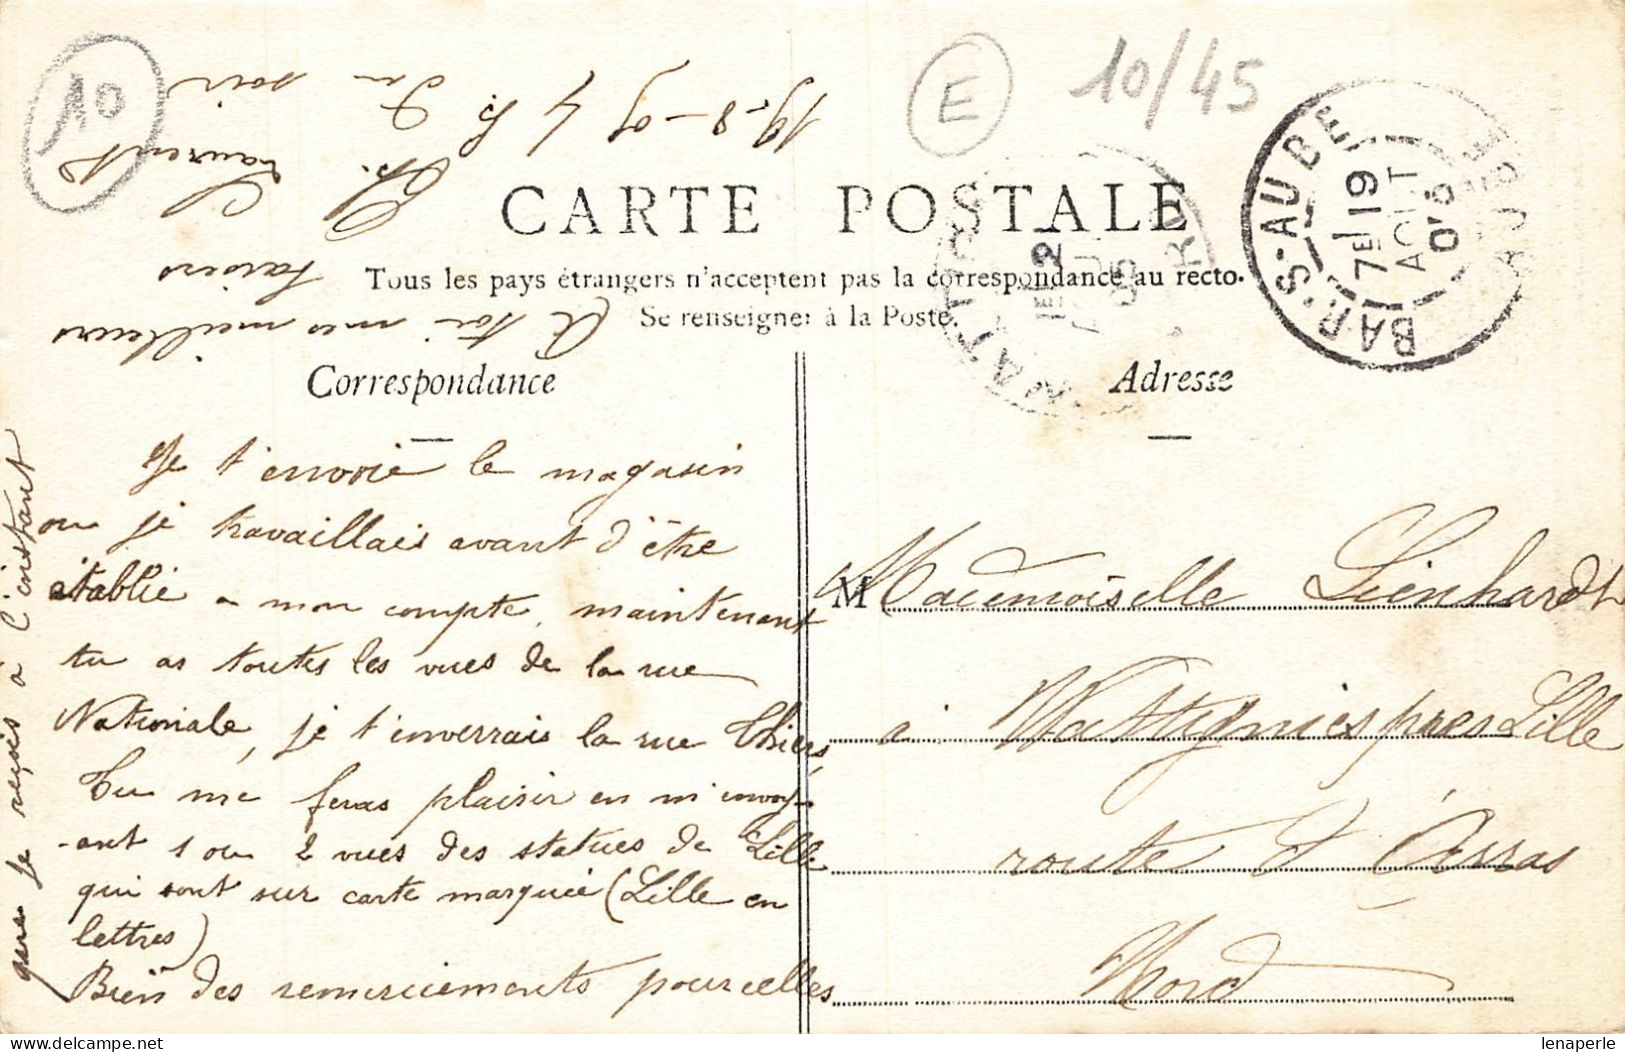 10
E
10/45
CARTE POSTALE
Tous les pays étrangers n'acceptent pas la correspondance au recto.
Se renseigner à la Poste.
BAR-S-AUBE
7E 19
AOUT
05
AUBE
WATT
2E
05
Correspondance
Adresse
Je t'envoie le magasin
ou je travaillais avant d'être
établie a mon compte, maintenant
tu as toutes les vues de la rue
Nationale, je t'enverrais la rue Thiers,
Tu me feras plaisir en m'envoy-
-ant 1 ou 2 vues des statues de Lille
qui sont sur carte marquée (Lille en
lettres)
Bien des remerciements pour celles
que je reçois à l'instant
A toi mes meilleurs
baisers
Ch. Laurent
19-8-05 4 h du soir
M Mademoiselle Liénhardt
à Wattignies près Lille
route d'Arras
Nord
lenaperle